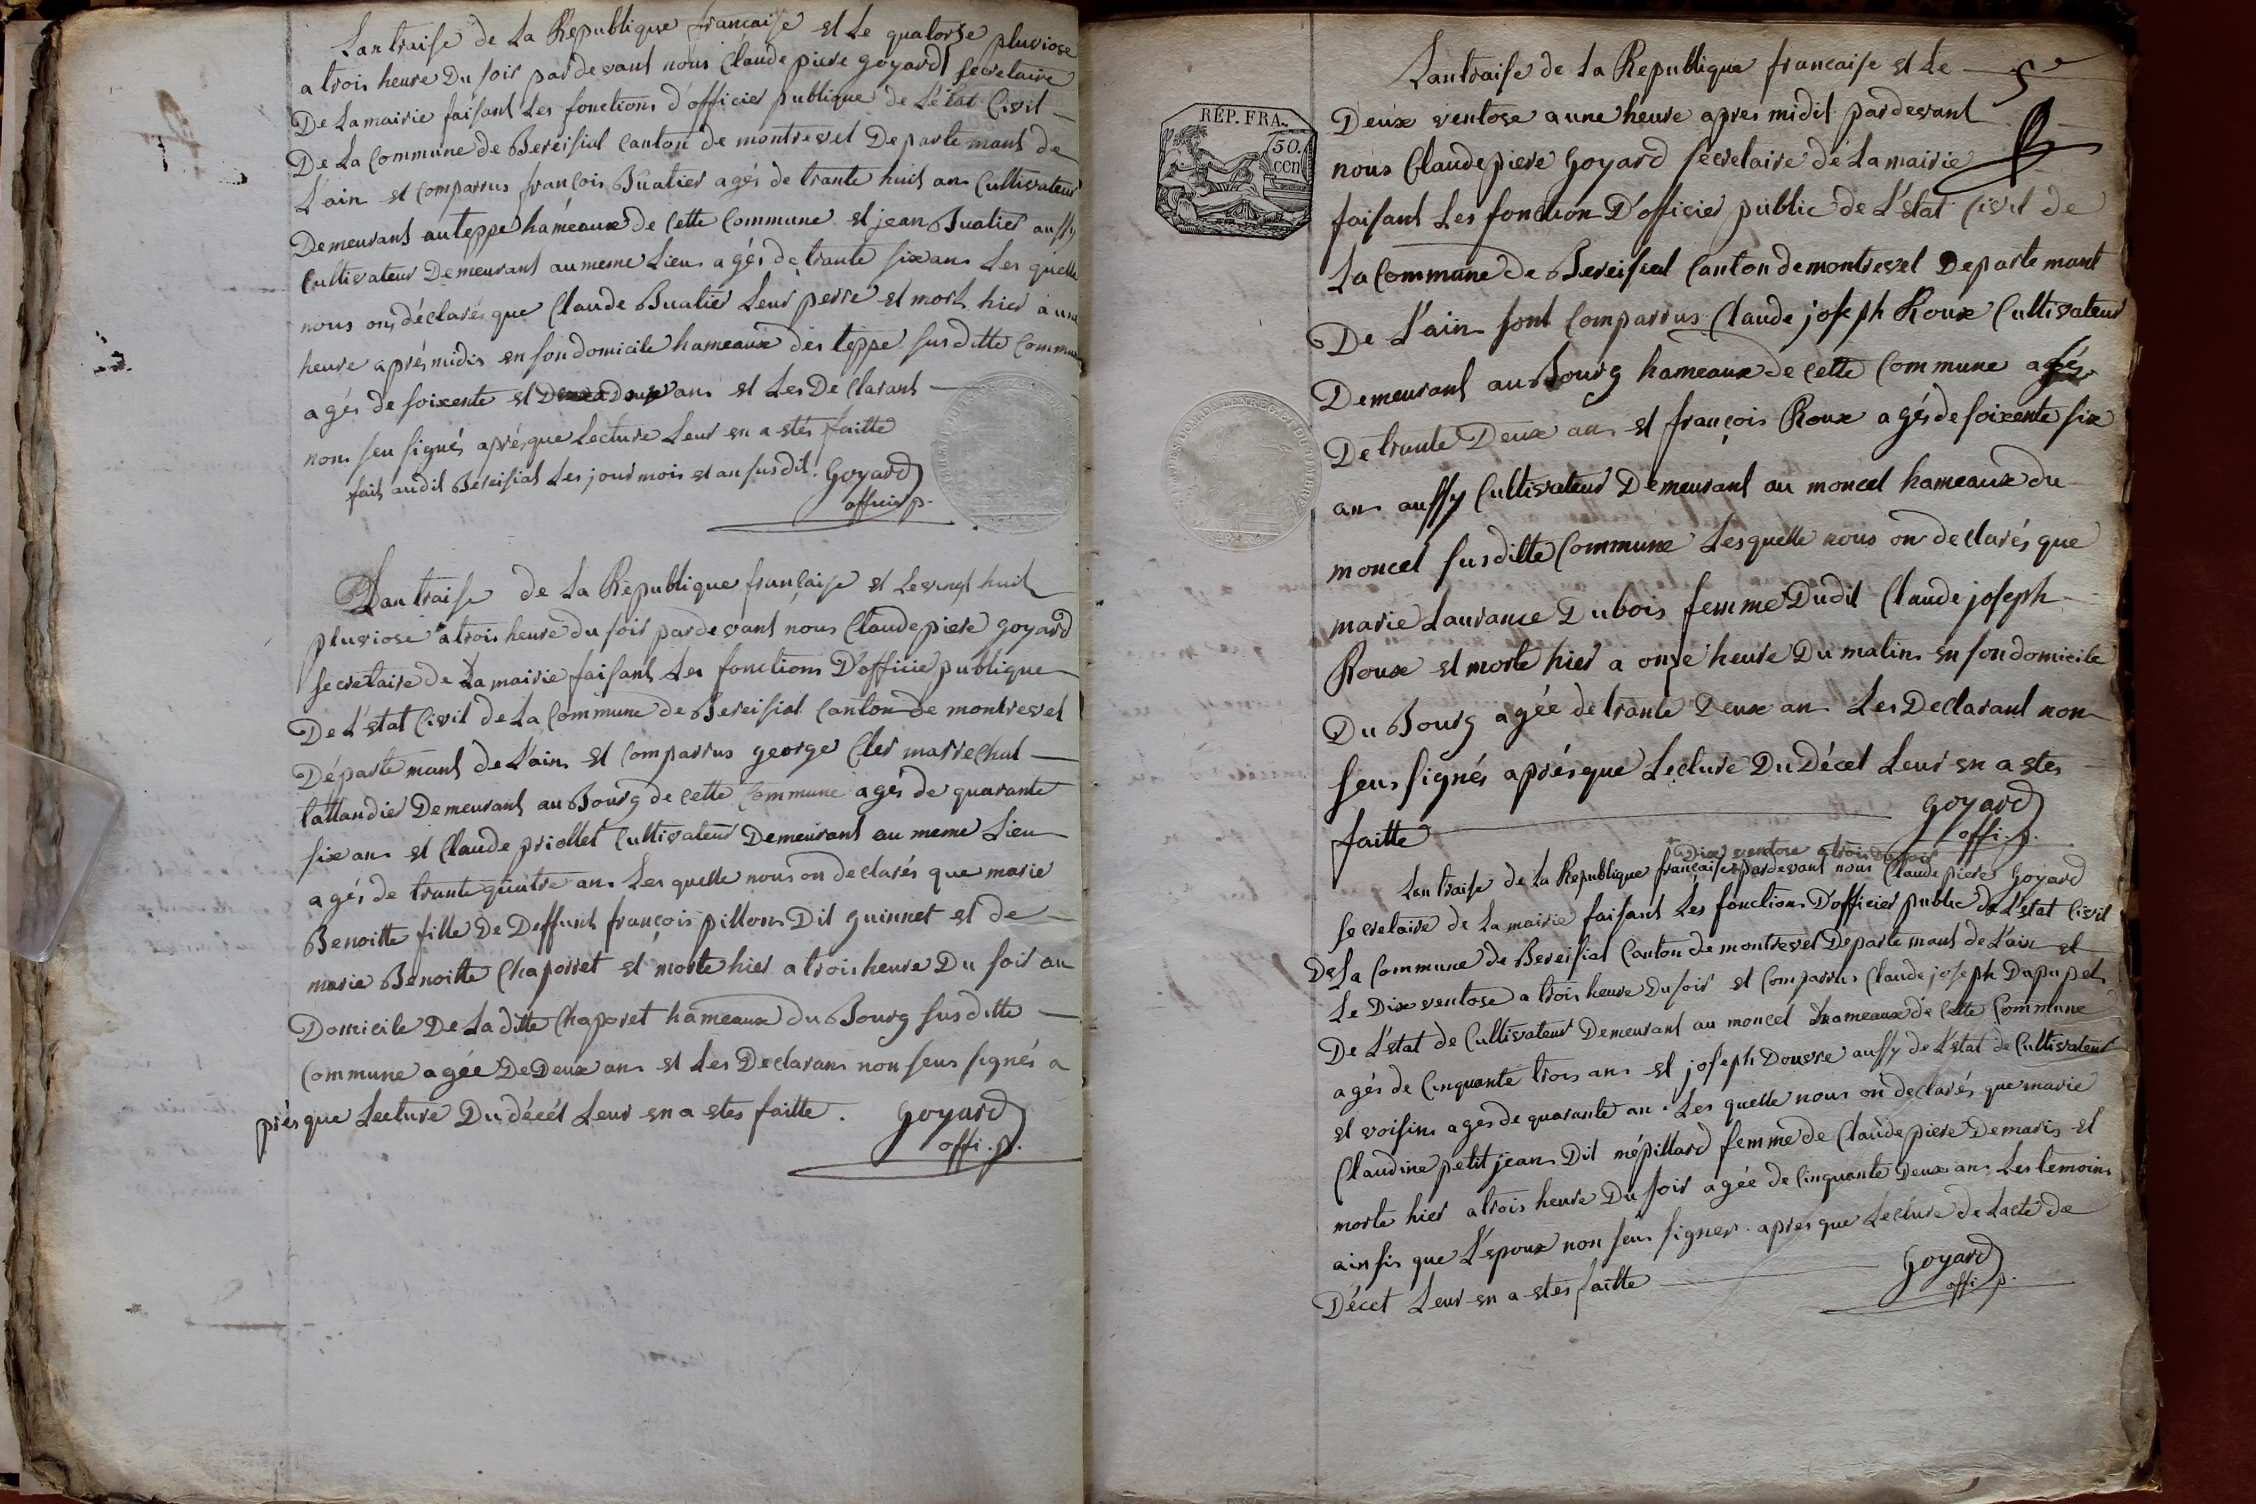 Lan traise de La Republique francaise et Le quatorse pluviose
a trois heure Du soir pardevant nous Claude piere Goyard secretaire
De La mairie faisant Les fonctions d'officier publique de L'état Civil
De La Commune de Bereisiat Canton de montrevel Departemant de
L'ain et comparrus françois Buatier agés de trante huit ans Cultivateur
Demeurant au teppe hameaux de Cette Commune et jean Buatier aussy
Cultivateur Demeurant au meme Lieu agés de trante six ans Les quelle
nous on déclarés que Claude Buatier Leur perre et mort hier a une
heure aprés midis en son domicile hameaux des teppe susditte Commune
agés de soixente et Douse ans et Les De Clarant
non seu signés aprés que Lecture Leur en a etés faitte
fait audit Bereisiat Les jour mois et an susdit. Goyard
officier p.
Lan traise de La Republique française et Le vingt huit
pluviose a trois heure du soir pardevant nous Claude piere Goyard
secretaire de La mairie faisant Les fonctions D'officie publique
De L'estat Civil de La Commune de Bereisiat Canton de montrevel
Départemant de L'ain et Comparrus george Cler marrechal
tattandier Demeurant au Bourg de cette Commune agés de quarante
six ans et Claude priollet Cultivateur Demeurant au meme Lieu
agés de trante quatre ans Les quelle nous on declarés que marie
Benoitte fille De Deffunt françois pillon Dit guinnet et de
marie Benoitte Chaporret et morte hier a trois heure Du soir au
Domicile De La ditte Chaporet hameaux du Bourg susditte
Commune agée De Deux ans et Les Declarans non seus signés a
prés que Lecture Du décét Leur en a etés faitte. Goyard
offi. p.
Lan traise de La Republique francaise et Le 5e
RÉP. FRA.
50. cen
Deux ventose a une heure apres midit pardevant
nous Claude piere Goyard secretaire de La mairie
faisant Les fonction D'officier public de L'estat Civil de
La Commune de Bereisiat Canton de montrevel Departemant
De L'ain sont Comparrus Claude joseph Roux Cultivateur
Demeurant au Bourg hameaux de Cette Commune agés
De trante Deux ans et françois Roux agés de soixente six
ans aussy Cultivateur Demeurant au moncel hameaux du
moncel susditte Commune Lesquelle nous on declarés que
marie Laurance Dubois femme Dudit Claude joseph
Roux et morte hier a onze heure Du matin en son domicile
Du Bourg agée de trante Deux ans Les Declarant non
seus signés aprés que Lecture Du Décet Leur en a etes
faitte Goyard
offi. p.
Dix ventose a trois du soir
Lan traise de La Republique française pardevant nous Claude piere Goyard
secretaire de La mairie faisant Les fonctions D'officier public De L'estat Civil
De La Commune de Bereisiat Canton de montrevel Departemant de L'ain et
Le Dix ventose a trois heure Du soir et Comparrus Claude joseph Dapupet
De L'estat de Cultivateur Demeurant au moncel hameaux de Cette Commune
agés de Cinquante trois ans et joseph Douvre aussy de L'estat de Cultivateur
et voisin agés de quarante ans. Les quelle nous on declarés que marie
Claudine petit jean Dit mépillard femme de Claude piere Demaris et
morte hier a trois heure Du soir agée de Cinquante Deux ans Les temoins
ainsis que L'époux non seus signer. apres que Lecture de Lacte de
Décet Leur en a etés faitte Goyard
offi. p.